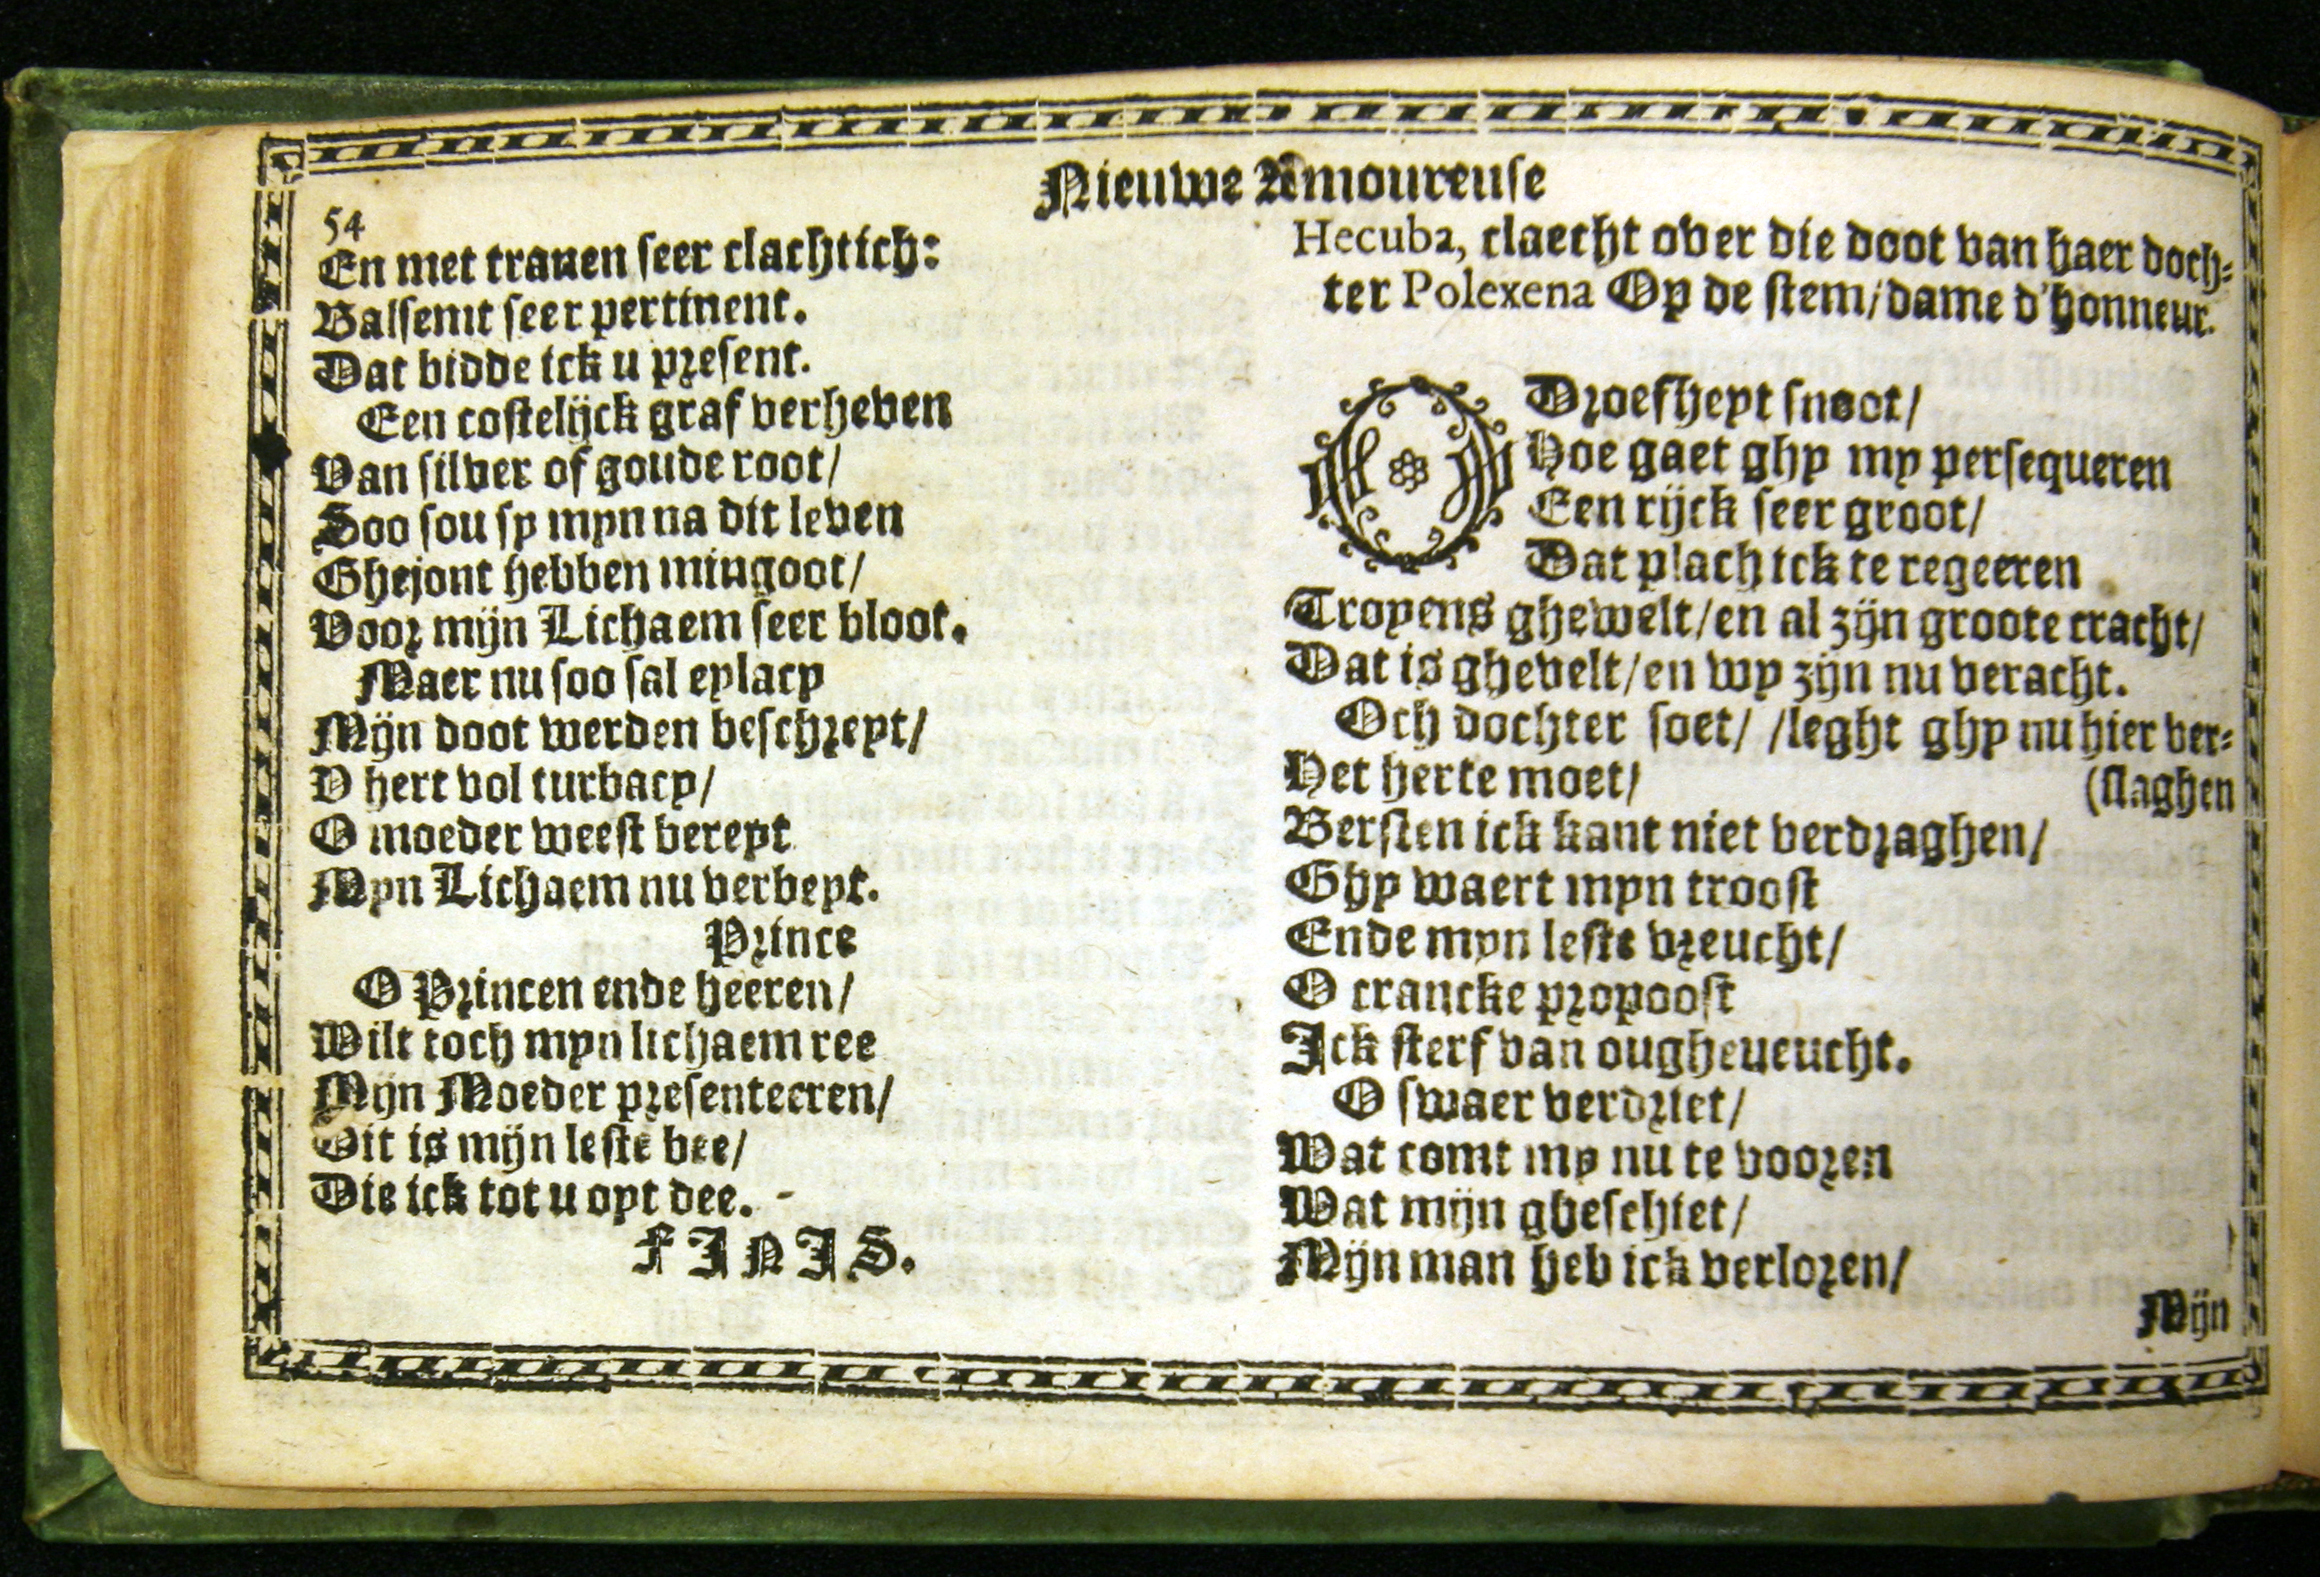 Nieuwe Amoureuse
54
En met tranen seer clachtich:
Balsemt seer pertinent.
Dat bidde ick u present.
Een costelijck graf verheven
Van silver of goude root/
Soo sou sy myn na dit leven
Ghejont hebben mingoot/
Voor mijn Lichaem seer bloot.
Maer nu soo sal eylacy
Mijn doot werden beschreyt/
O hert vol turbacy/
O moeder weest bereyt
Myn Lichaem nu verbeyt.
Prince
O Princen ende heeren/
Wilt toch myn lichaem ree
Mijn Moeder presenteeren/
Dit is mijn leste bee/
Die ick tot u oyt dee. -
FINIS.
Hecuba, claecht over die doot van haer doch-
ter Polexena Op de stem/dame d'honneur.
O Droefheyt snoot/
Hoe gaet ghy my persequeren
Een rijck seer groot/
Dat plach ick te regeeren
Troyens ghewelt/en al zijn groote cracht/
Dat is ghevelt/en wy zijn nu veracht.
Och dochter soet/ /leght ghy nu hier ver-
Het herte moet/ (slaghen
Bersten ick kant niet verdraghen/
Ghy waert myn troost
Ende myn leste vreucht/
O crancke propoost
Ick sterf van ougheueucht.
O swaer verdriet/
Wat comt my nu te vooren
Wat mijn gheschiet/
Mijn man heb ick verloren/
Mijn